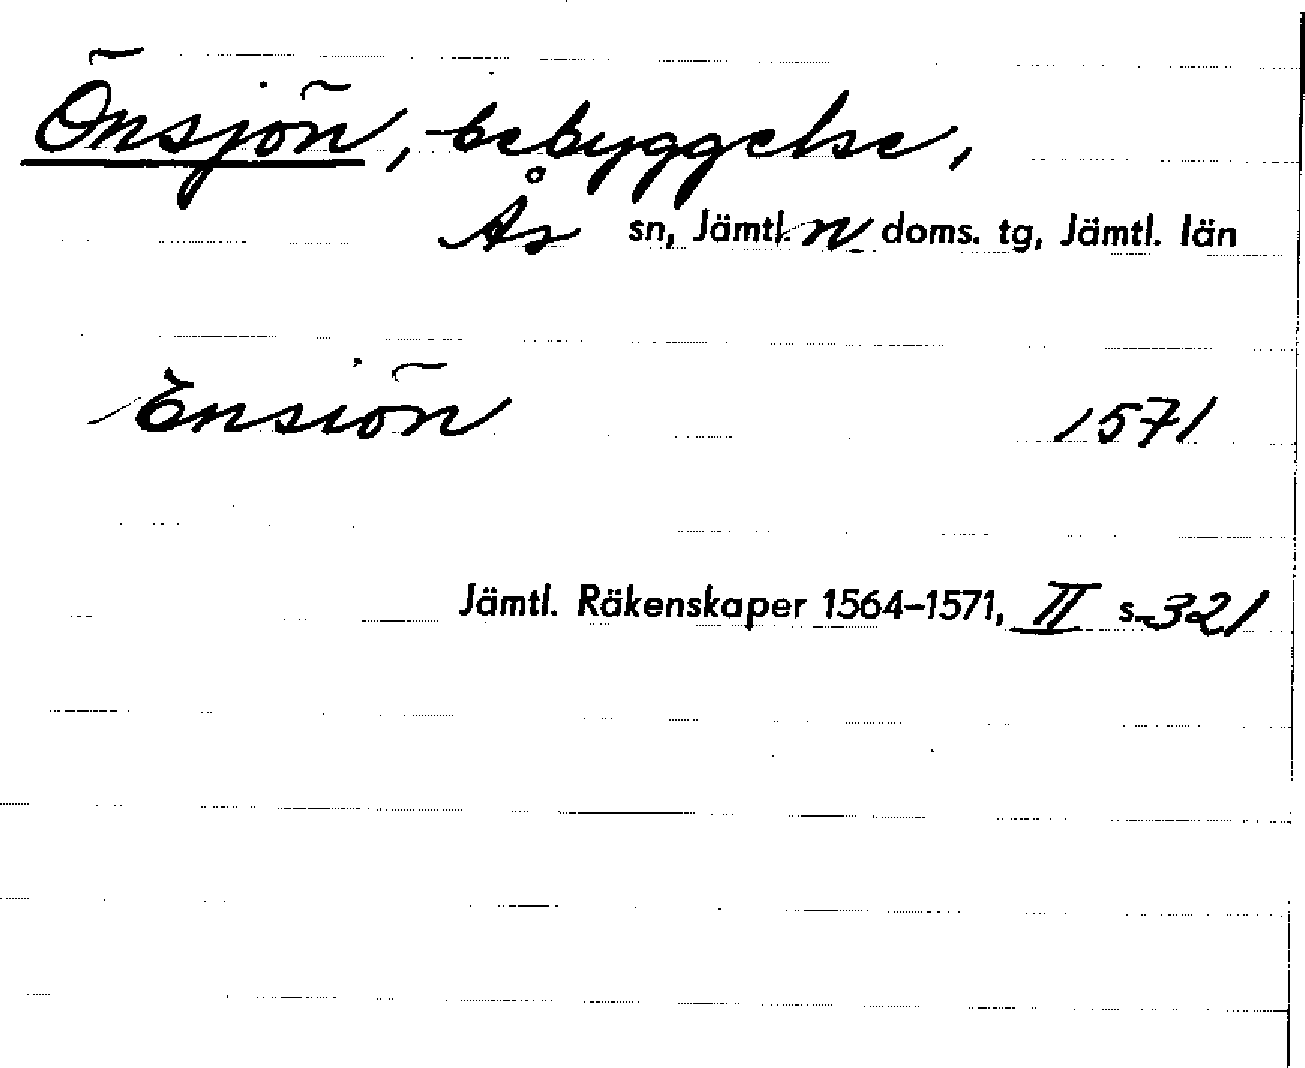 Önsjön, bebyggelse,
Ås sn, Jämtl. n doms. tg, Jämtl. län
Ensiön 1571
Jämtl. Räkenskaper 1564–1571, II s. 321